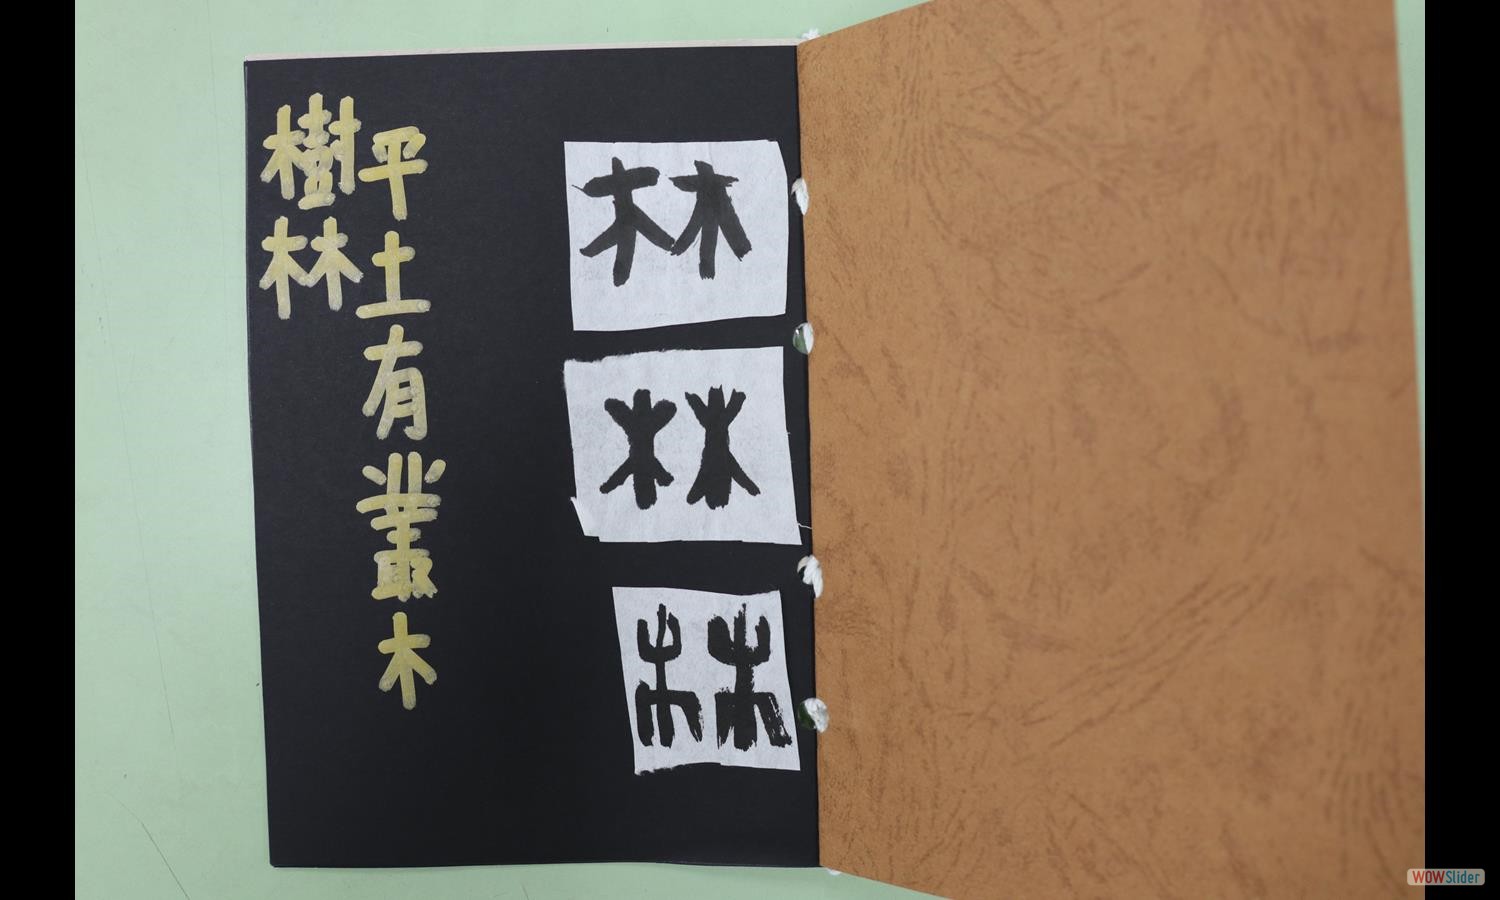 林
林
林
平土有叢木
樹林
WOWSlider